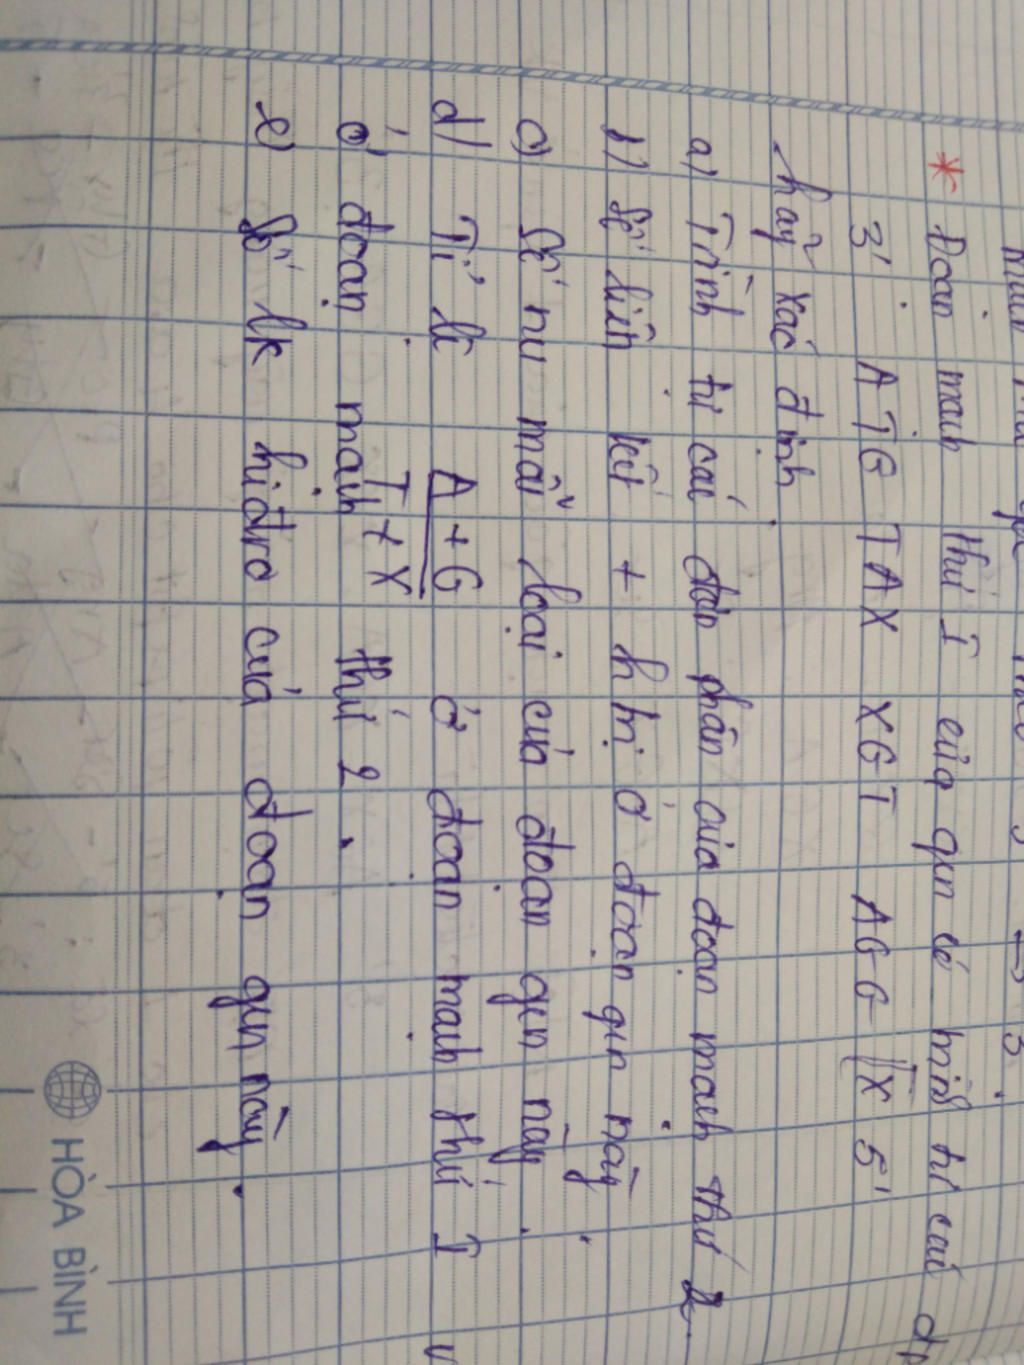 * Đoạn mạch thứ I của gen có trình tự các
3' ATG TAX XGT AGG TX 5'
hãy xác định
a) Trình tự các đơn phân của đoạn mạch thứ 2.
b) Số liên kết + h trị ở đoạn gen này.
c) Số nu mỗi loại của đoạn gen này.
d) Tỉ lệ A + G ở đoạn mạch thứ I
T + X
ở đoạn mạch thứ 2.
e) Số lk hiđro của đoạn gen này.
HÒA BÌNH